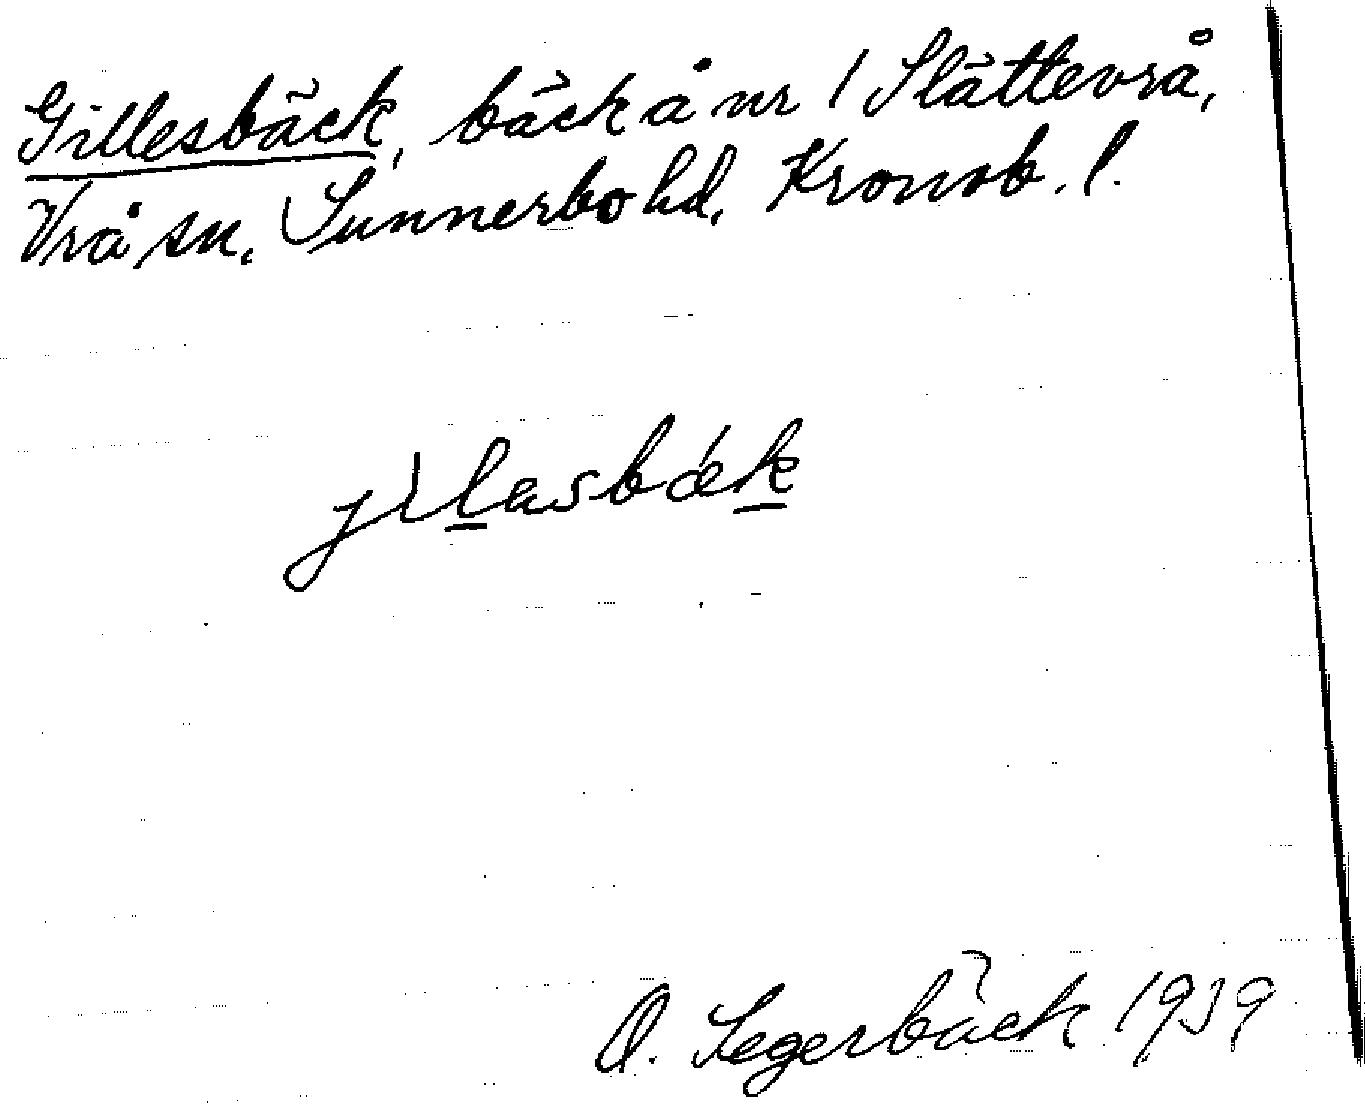 Gillesbäck, bäck å nr 1 Slättevrå,
Vrå sn, Sunnerbo hd, Kronob. l.
jìlasbæ̀k
O. Segerbäck 1939